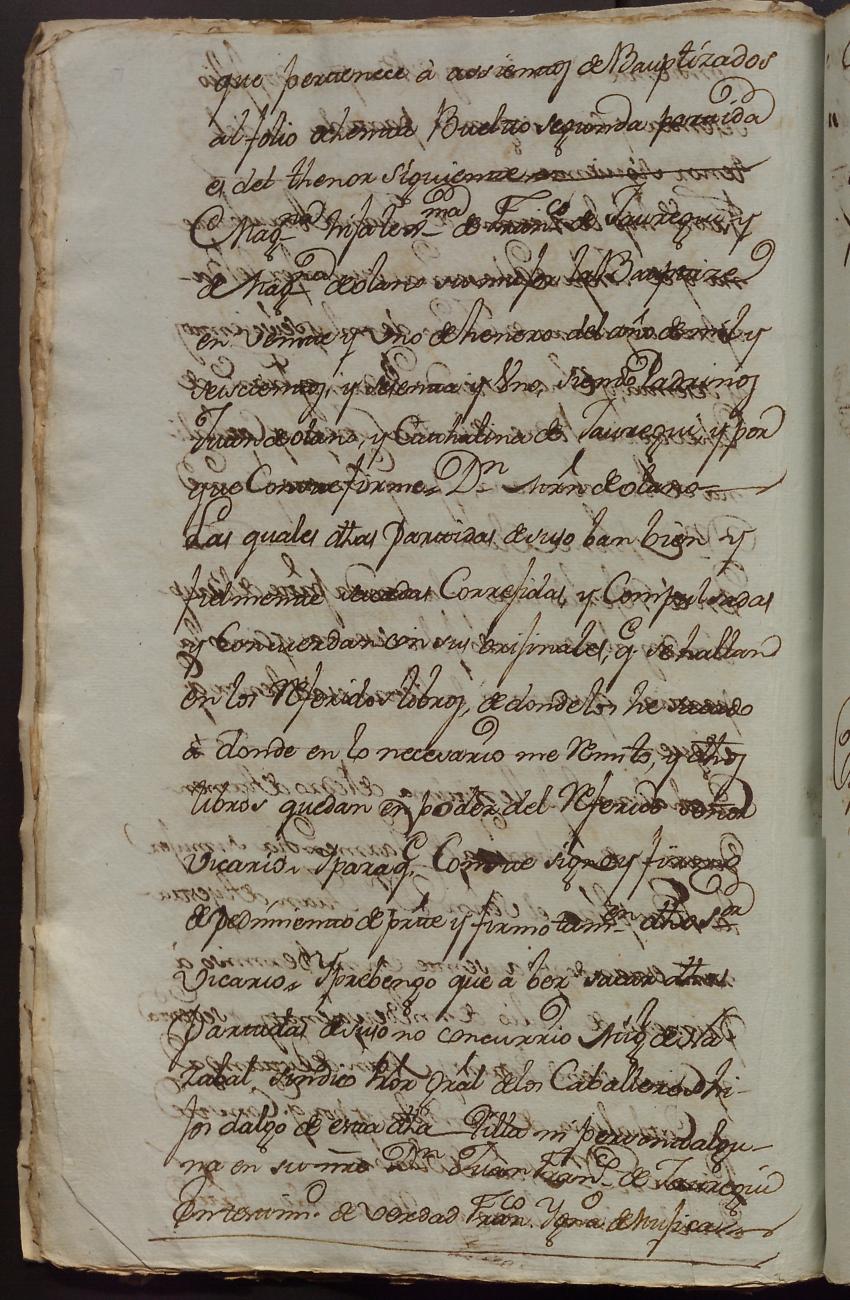 que pertenece à assientos de Bauptizados
al folio ochenta Buelto segunda partida
es del thenor siguiente
Mag.na hija lex.ma de Fran.co de Jauregui y
de Mag.na de olano su muger la Bauptize
en veinte y Uno de henero del año de mil y
seiscientos, y sesenta y Uno, siendo Padrinos
Juan de olano, y Cathalina de Jauregui y por
que Conste firme. Dn Mrn de olano
Las quales dhas Partidas de suso ban bien y
fielmente sacadas Correjidas, y Compulsadas
y Concuerdan con sus orijinales, q se hallan
en los Referidos libros, de donde los he sacado
à donde en lo necesario me Remito, y dhos
libros quedan en poder del Referido señor
Vicario, y para q Conste signe y firme
de pedimiento de prte y firmo tam.en dho s.or
Vicario, y prebengo que a ber sacar dhas
Partidas de suso no concurrio Mig.l de
zabal, sindico Pror Gral de los Caballeros hi-
jos dalgo de esta dha Villa ni persona algu-
na en su nre Dn Juan Fran.co de Jauregui
En testim.o de verdad Fran.co Ygn.o de